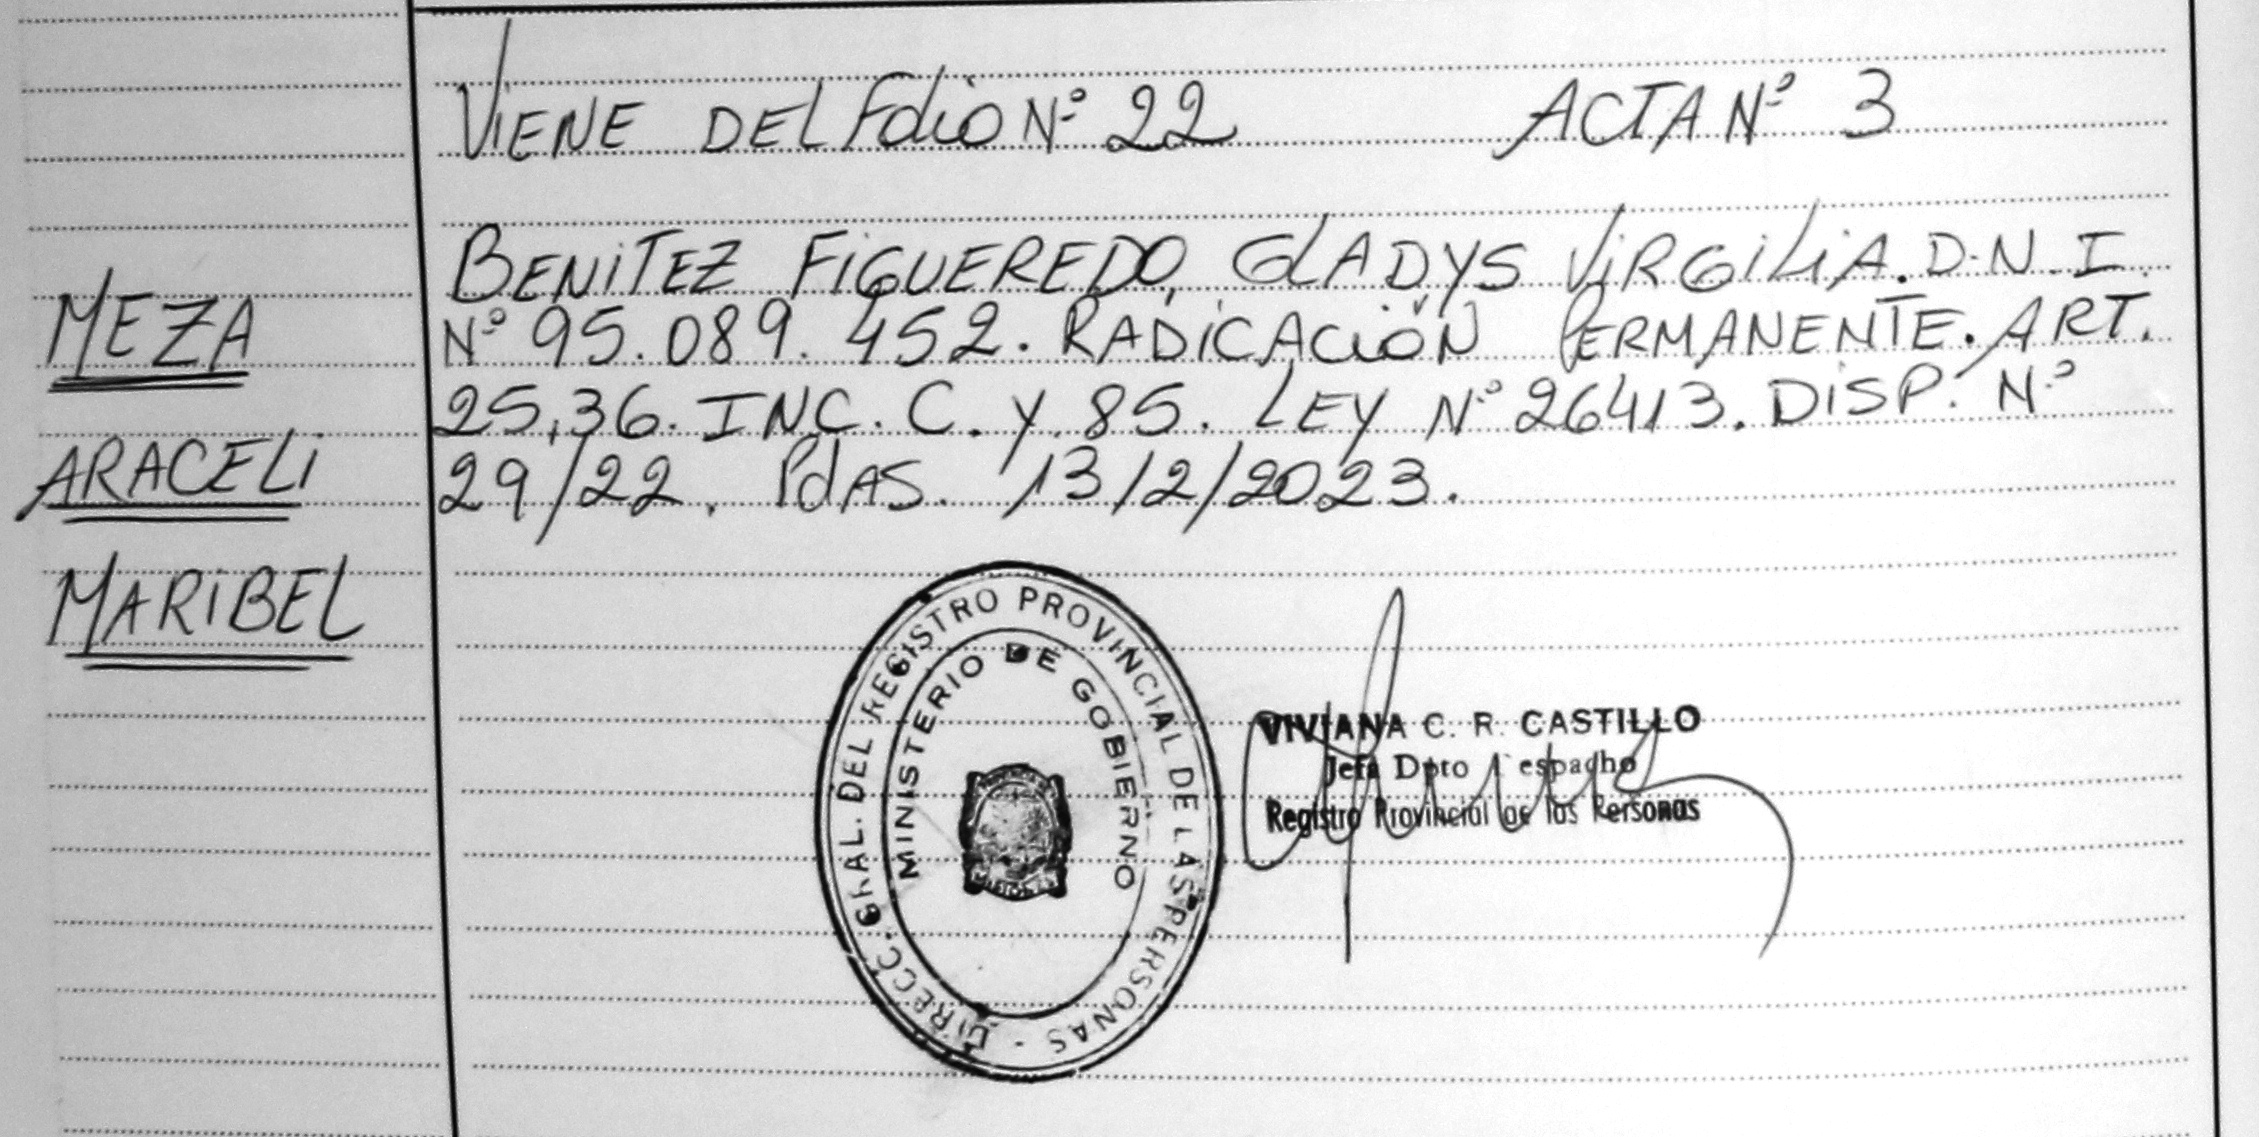 VIENE DEL Folio Nº 22 ACTA Nº 3
MEZA
ARACELi
MARiBEL
BENiTEZ FiGUEREDO, GLADYS ViRGiLiA. D.N.I.
Nº 95.089.452. RADiCACiÓN PERMANENTE. ART.
25,36. INC. C. Y 85. LEY Nº 26413. DiSP. Nº
29/22. PdAS. 13/2/2023.
DIRECC. GRAL. DEL REGISTRO PROVINCIAL DE LAS PERSONAS -
MINISTERIO DE GOBIERNO
VIVIANA C. R. CASTILLO
Jefa Dpto espacho
Registro Provincial de las Personas